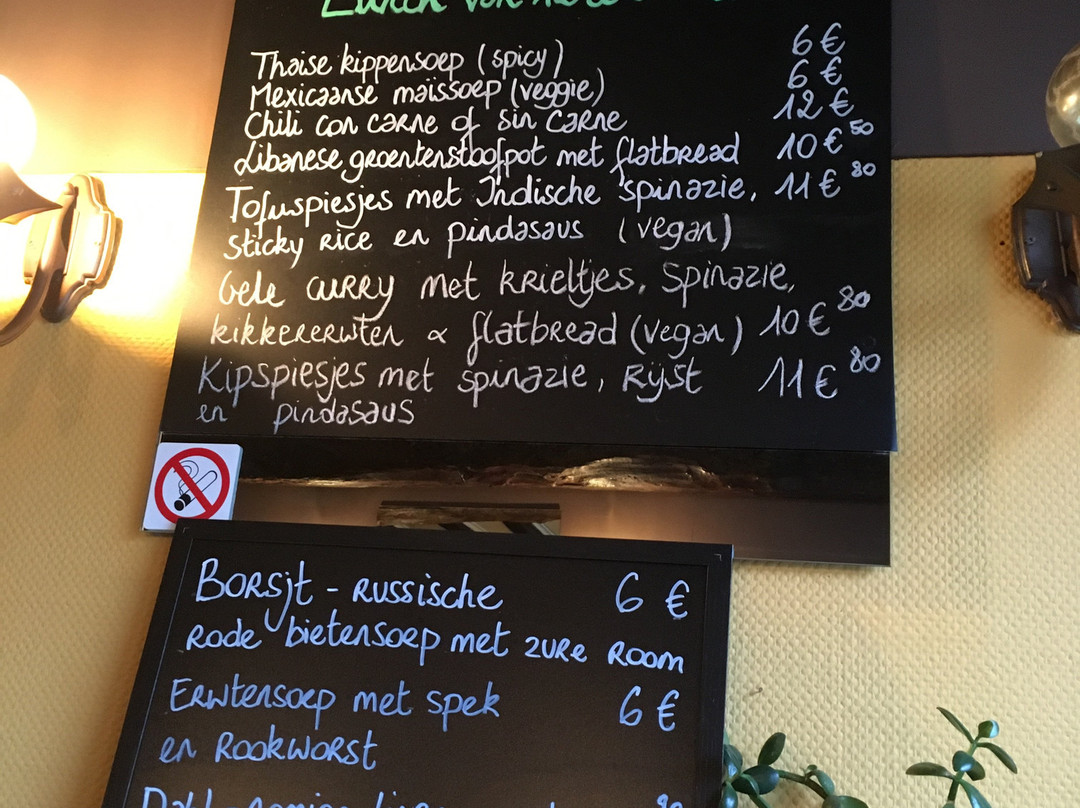 Lunch
Thaise kippensoep (spicy) 6 €
Mexicaanse maissoep (veggie) 6 €
Chili con carne of sin carne 12 €
Libanese groentenstoofpot met flatbread 10 € 50
Tofuspiesjes met Indische spinazie, 11 € 80
sticky rice en pindasaus (vegan)
Gele curry met krieltjes, spinazie,
kikkererwten & flatbread (vegan) 10 € 80
Kipspiesjes met spinazie, Rijst 11 € 80
en pindasaus
Borsjt - Russische 6 €
Rode bietensoep met zure room
Erwtensoep met spek 6 €
en Rookworst